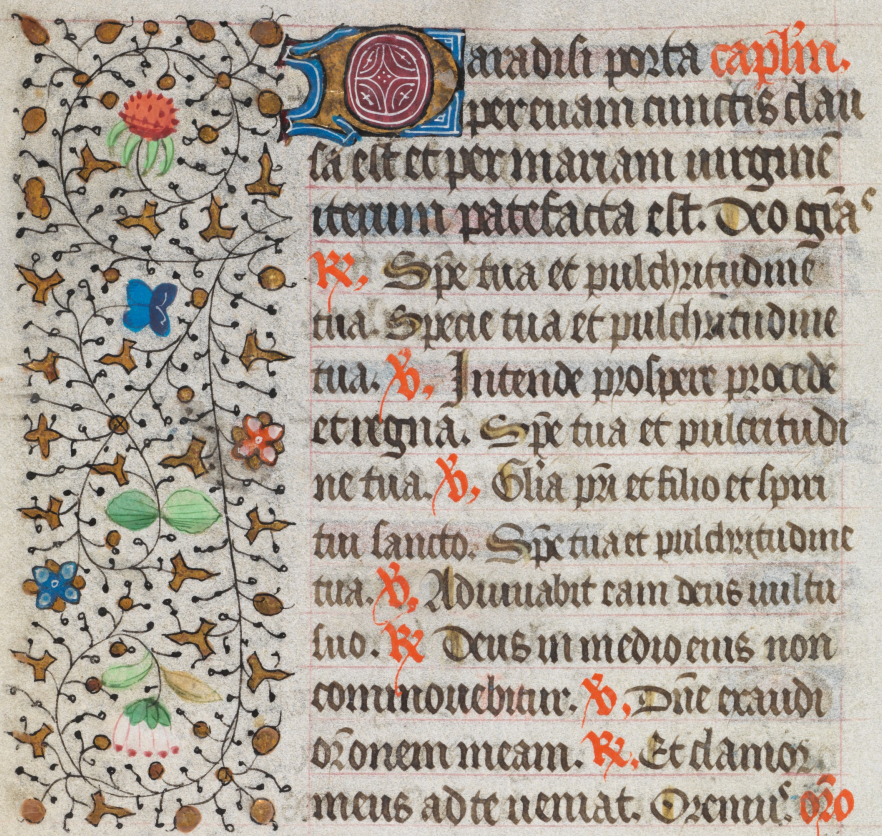 Paradisi porta caplm̄.
per euam cunctis clau
sa est et per mariam uirginē
iterum patefacta est. Deo grā⁹
℟. Spē tua et pulchritudine
tua. Specie tua et pulchritudine
tua. ℣. Intende prospere procede
et regna. Spē tua et pulcritudi
ne tua. ℣. Glīa pr̄i et filio et spiri
tui sancto. Spē tua et pulchritudine
tua. ℣. Adiuuabit eam deus uultu
suo. ℟ Deus in medio eius non
commouebitur. ℣. Dn̄e exaudi
or̄onem meam. ℟. Et clamor
meus ad te ueniat. Oremu⁹. or̄o